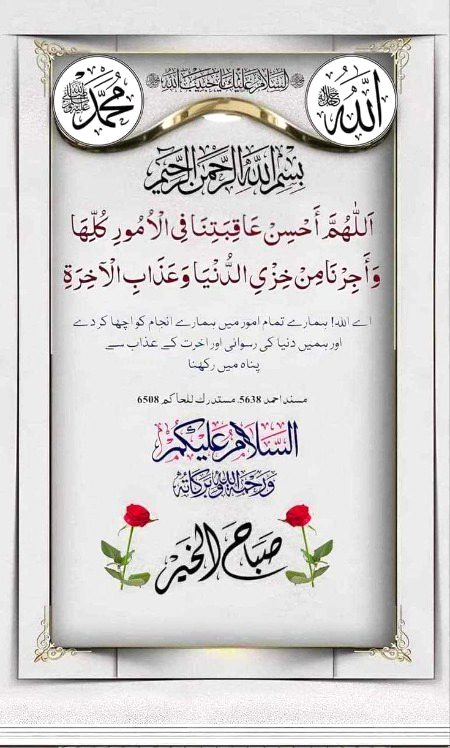 السلام علیک یا حبیب اللہ
الله ﷻ
محمد ﷺ
بسم الله الرحمن الرحيم
اَللّٰهُمَّ أَحْسِنْ عَاقِبَتَنَا فِي الْاُمُورِ كُلِّهَا
وَأَجِرْنَا مِنْ خِزْيِ الدُّنْيَا وَعَذَابِ الْاٰخِرَةِ
اے اللہ! ہمارے تمام امور میں ہمارے انجام کو اچھا کر دے
اور ہمیں دنیا کی رسوائی اور آخرت کے عذاب سے
پناہ میں رکھنا
مسند احمد 5638، مستدرك للحاكم 6508
السلام عليكم
ورحمة الله وبركاته
صباح الخير